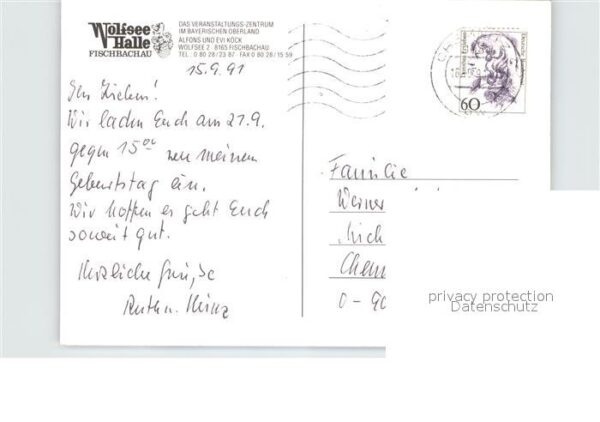 Wolfsee
Halle
FISCHBACHAU
DAS VERANSTALTUNGS-ZENTRUM
IM BAYERISCHEN OBERLAND
ALFONS UND EVI KÖCK
WOLFSEE 2 · 8165 FISCHBACHAU
TEL. 0 80 28 / 23 87 · FAX 0 80 28 / 15 59
15.9.91
Ihr Lieben!
Wir laden Euch am 21.9.
gegen 15°° zu meinem
Geburtstag ein.
Wir hoffen es geht Euch
soweit gut.
Herzliche Grüße
Ruth u. Heinz
60
Familie
Werner
Chem
0-90
privacy protection
Datenschutz